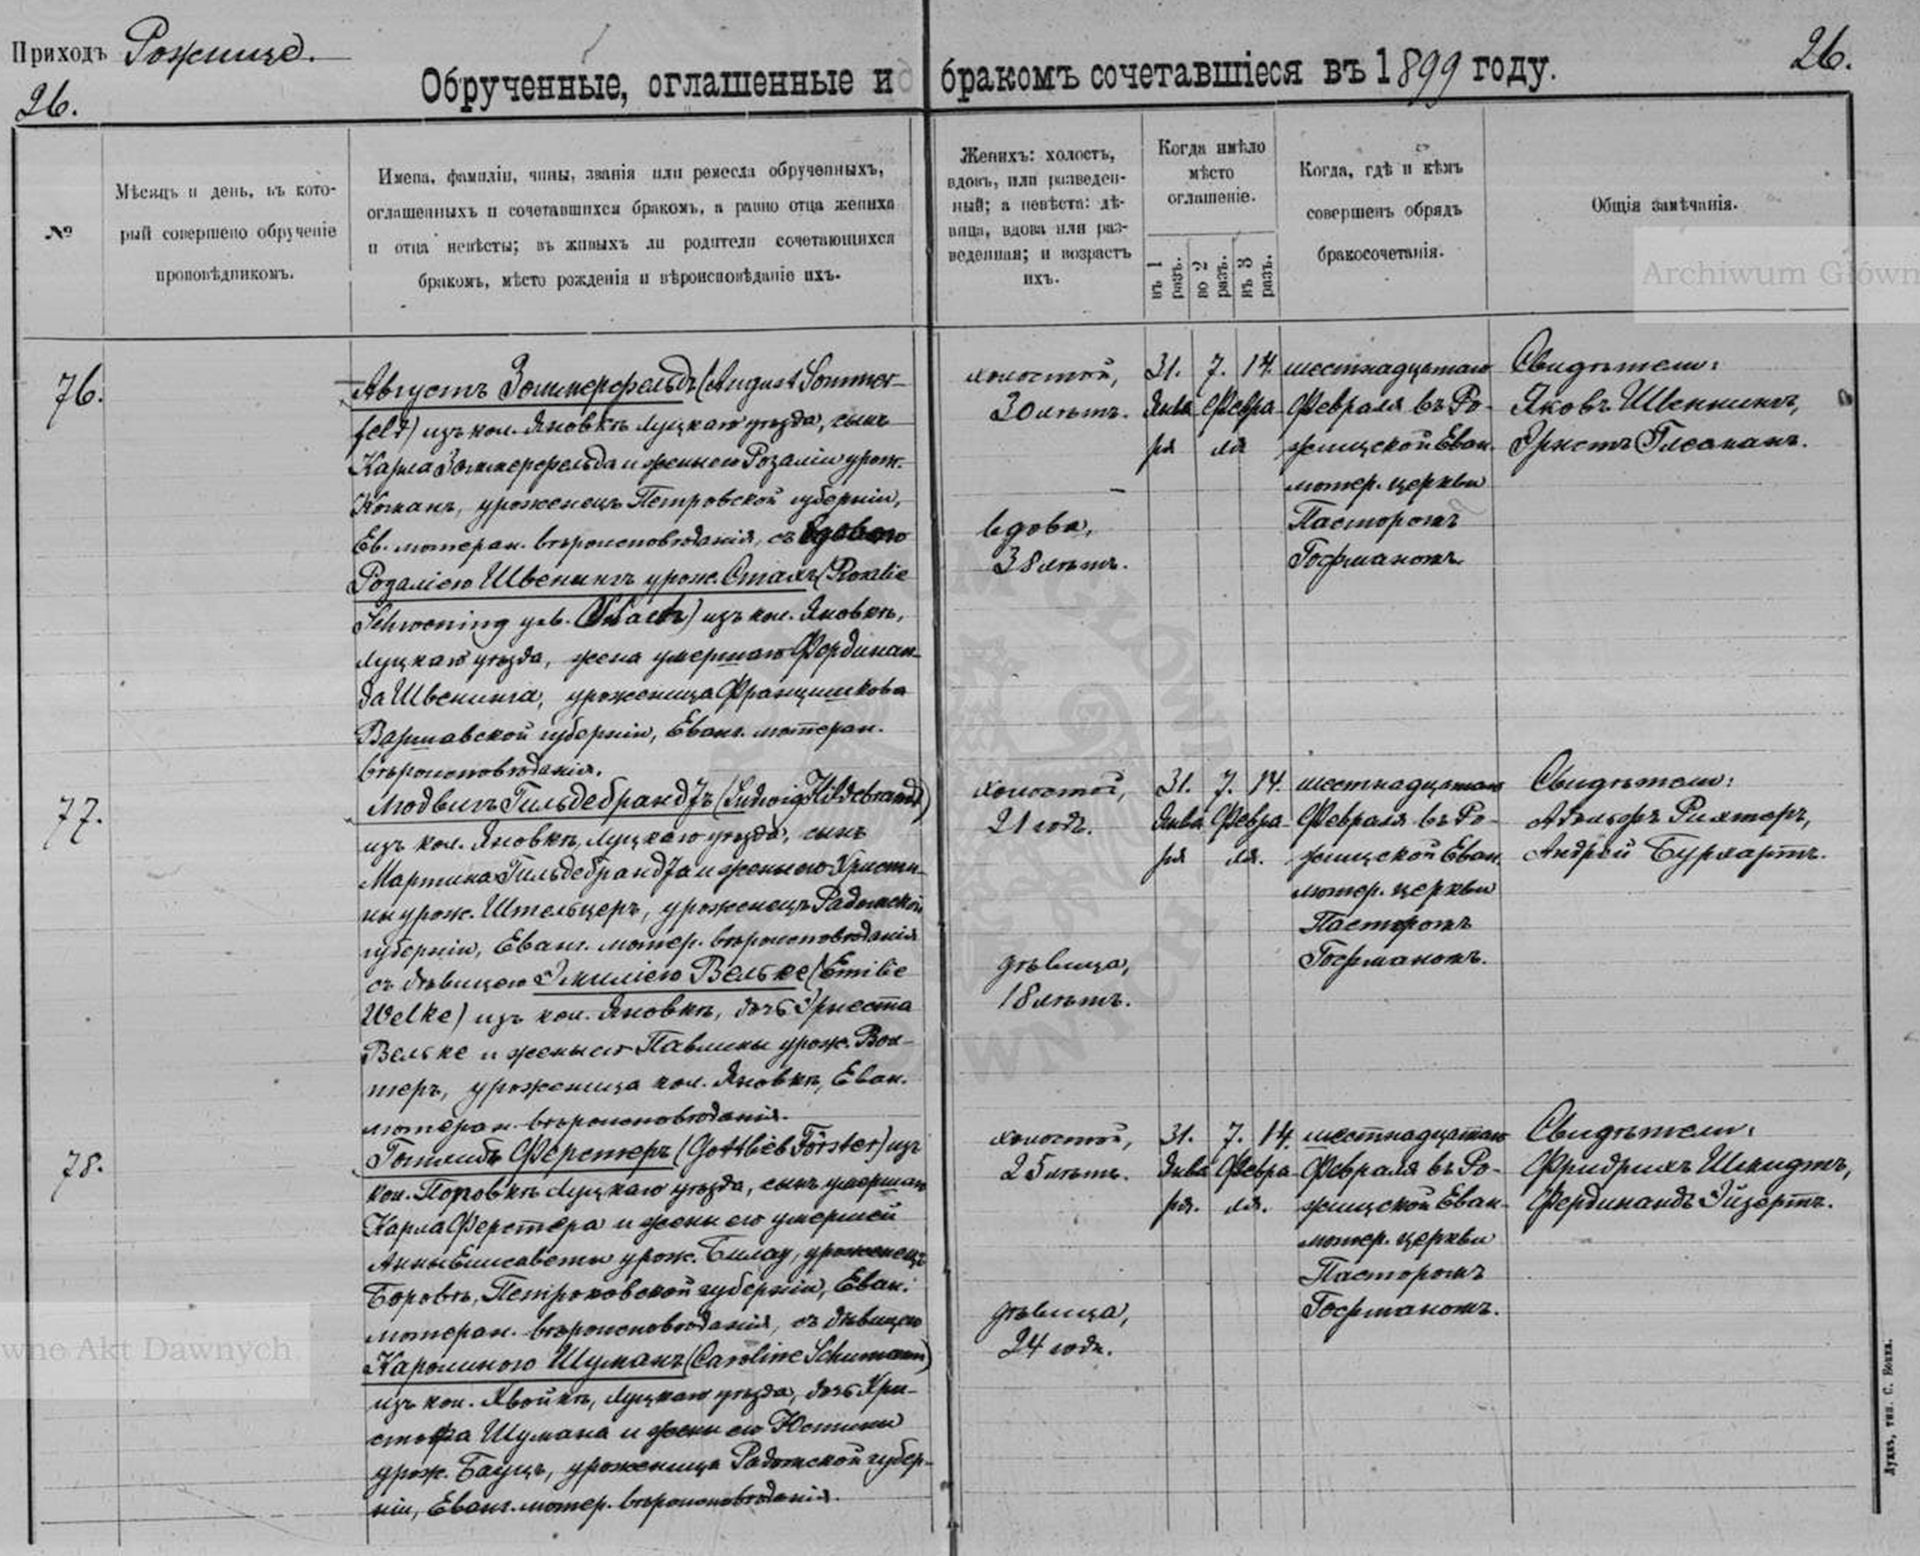 Приходъ Рожище.
26.
26.
Обрученные, оглашенные и бракомъ сочетавшіеся въ 1899 году.
№
Мѣсяцъ и день, въ кото-
рый совершено обрученіе
проповѣдникомъ.
Имена, фамиліи, чины, званія или ремесла обрученныхъ,
оглашенныхъ и сочетавшихся бракомъ, а равно отца жениха
и отца невѣсты; въ живыхъ ли родители сочетающихся
бракомъ, мѣсто рожденія и вѣроисповѣданіе ихъ.
Женихъ: холостъ,
вдовъ, или разведен-
ный; а невѣста: дѣ-
вица, вдова или раз-
веденная; и возрастъ
ихъ.
Когда имѣло
мѣсто
оглашеніе.
въ 1 разъ.
во 2 разъ.
въ 3 разъ.
Когда, гдѣ и кѣмъ
совершенъ обрядъ
бракосочетанія.
Общія замѣчанія.
Archiwum Główn
76.
Августъ Зоммерфельдъ (August Sommer-
feld) изъ кол. Яновки Луцкаго уѣзда, сынъ
Карла Зоммерфельда и жены его Розаліи урож.
уроженецъ Петровской губерніи,
Ев. лютеран. вѣроисповѣданія, съ вдовою
Розаліею Швенингъ урож. (Rosalie
Schwening geb.) изъ кол. Яновки,
Луцкаго уѣзда, жена умершаго Фердинан-
да Швенинга, уроженица Францишкова
Варшавской губерніи, Еванг. лютеран.
вѣроисповѣданія.
холостой,
30 лѣтъ.
вдова,
38 лѣтъ.
31. 7. 14.
Янва Февра
ря ля
шестнадцатаго
Февраля въ Ро-
жищской Еван.
лютер. церкви
Пасторомъ
Гофманомъ.
Свидѣтели:
Яковъ Швенингъ,
Эрнстъ Глесманъ.
77.
Людвигъ Гильдебрандтъ (Ludwig Hildebrandt)
изъ кол. Яновки, Луцкаго уѣзда, сынъ
Мартина Гильдебрандта и жены его Христи-
ны урож. Штельцеръ, уроженецъ Радомской
губерніи, Еванг. лютер. вѣроисповѣданія
съ дѣвицею Эмиліею Вельке (Emilie
Welke) изъ кол. Яновки, дочь Эрнеста
Вельке и жены его Павлины урож. Вол-
теръ, уроженица кол. Яновки, Еван.
лютеран. вѣроисповѣданія.
холостой,
21 годъ.
дѣвица,
18 лѣтъ.
31. 7. 14.
Янва Февра
ря ля.
шестнадцатаго
Февраля въ Ро-
жищской Еван.
лютер. церкви
Пасторомъ
Гофманомъ.
Свидѣтели:
Адольфъ Рихтеръ,
Андрей Бурхартъ.
78.
Готлибъ Ферстеръ (Gottlieb Förster) изъ
кол. Луцкаго уѣзда, сынъ умершаго
Карла Ферстера и жены его умершей
Анны Елисаветы урож. Билау, уроженецъ
Петроковской губерніи, Еван.
лютеран. вѣроисповѣданія, съ дѣвицею
Каролиною Шуманъ (Caroline Schumann)
изъ кол. Хвойки, Луцкаго уѣзда, дочь Хри-
стофа Шумана и жены его Юстины
урож. Бауцъ, уроженица Радомской губер-
ніи, Еванг. лютер. вѣроисповѣданія.
холостой,
25 лѣтъ.
дѣвица,
24 года.
31. 7. 14.
Янва Февра
ря. ля.
шестнадцатаго
Февраля въ Ро-
жищской Еван-
лютер. церкви
Пасторомъ
Гофманомъ.
Свидѣтели:
Фридрихъ Шмидтъ,
Фердинандъ Эйзертъ.
wne Akt Dawnych
Луцкъ, тип. С. Бонка.